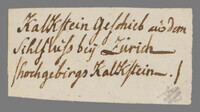 Kalkstein Geschieb aus dem
Sihlfluss bey Zürich
Hochgebirgs Kalkstein